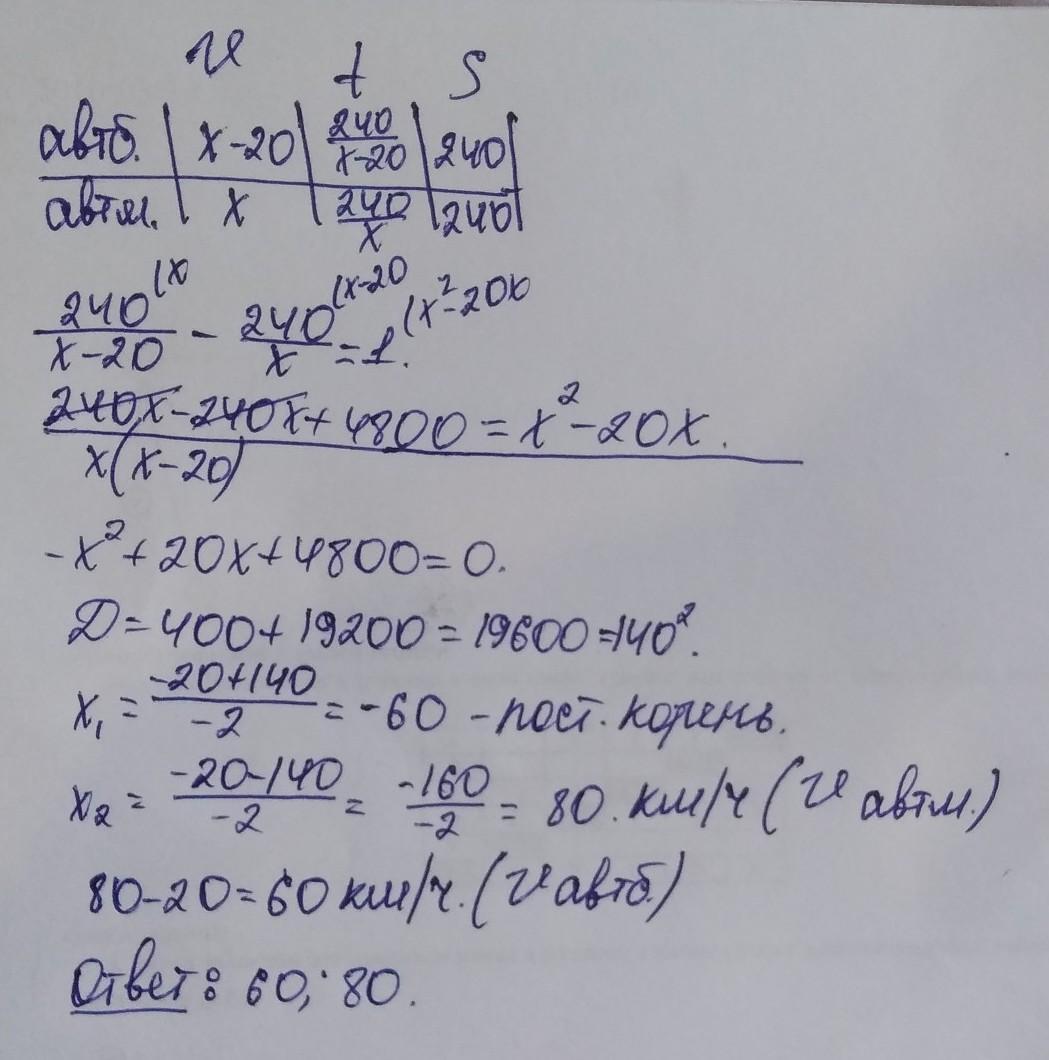 v t S
автб. | x-20 | 240/(x-20) | 240 |
автм. | x | 240/x | 240 |
240^(x/(x-20) - 240^(x-20/x = 1.^(x²-20x
240x-240x+4800 = x²-20x.
x(x-20)
-x²+20x+4800=0.
D=400+19200=19600=140².
x₁ = (-20+140)/(-2) = -60 - пост. корень.
x₂ = (-20-140)/(-2) = (-160)/(-2) = 80. км/ч (v автм.)
80-20=60 км/ч. (v автб.)
Ответ: 60; 80.